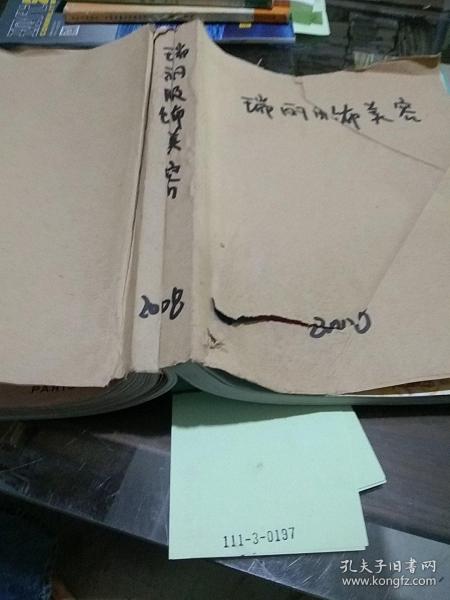 瑞丽服饰美容
瑞丽服饰美容
2008
PARIS
111-3-0197
孔夫子旧书网
www.kongfz.com